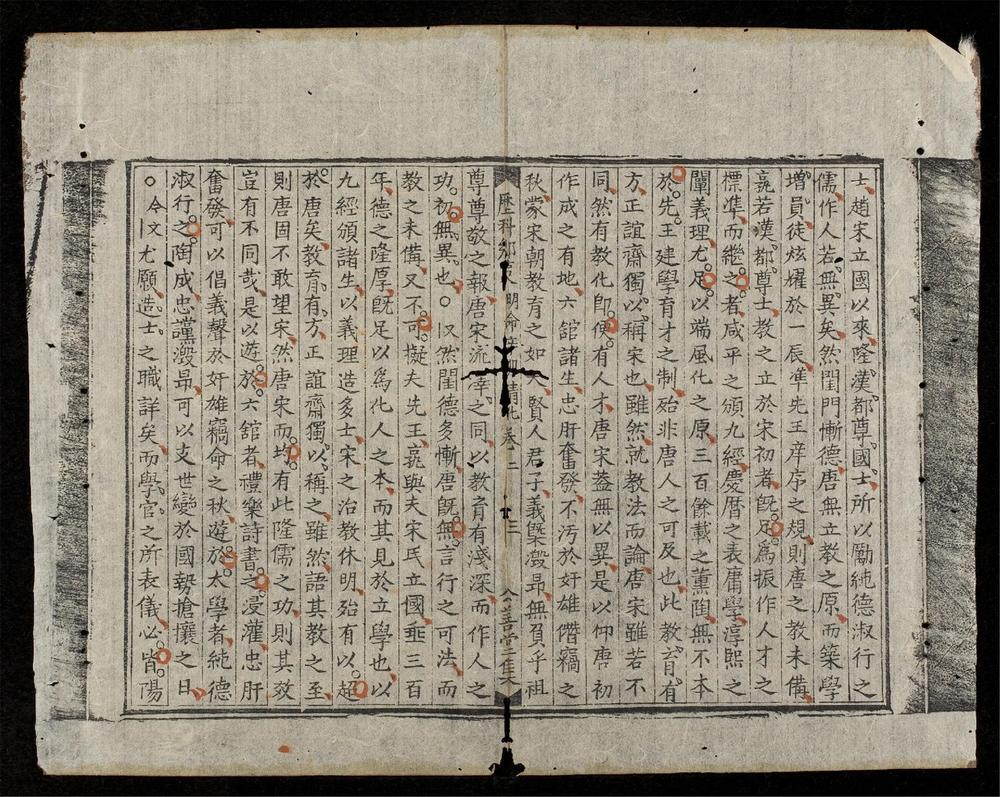 士趙宋立國以來隆漢都尊國士所以勵純德淑行之
儒作人若無異矣然閨門慚德唐無立教之原而築學
增員徒炫燿於一辰準先王庠序之規則唐之教未備
孰若漢都尊士教之立於宋初者旣足爲振作人才之
標準而繼之者咸平之頒九經慶曆之表庸學淳熙之
闡義理尤足以端風化之原三百餘載之薰陶無不本
於先王建學育才之制殆非唐人之可及也此教育有
方正誼齋獨以稱宋也雖然就教法而論唐宋雖若不
同然有教化卽便有人才唐宋蓋無以異是以仰唐初
作成之有地六舘諸生忠肝奮發不汚於奸雄僭竊之
秋蒙宋朝教育之如天賢人君子義槩激昻無負乎祖
歷科鄉 明命 卷二 三 善堂二集
尊尊敬之報唐宋流澤之同以教育有淺深而作人之
功初無異也○又然閨德多慚唐旣無言行之可法而
教之未備又不可擬夫先王孰與夫宋氏立國垂三百
年德之隆厚旣足以爲化人之本而其見於立學也以
九經頒諸生以義理造多士宋之治教休明殆有以超
於唐矣教育有方正誼齋獨以稱之雖然語其教之至
則唐固不敢望宋然唐宋而均有此隆儒之功則其效
豈有不同哉是以遊於六舘者禮樂詩書之浸灌忠肝
奮發可以倡義聲於奸雄竊命之秋遊於太學者純德
淑行之陶成忠讜激昻可以支世變於國勢搶攘之日
○今文尤願造士之職詳矣而學官之所表儀必皆陽